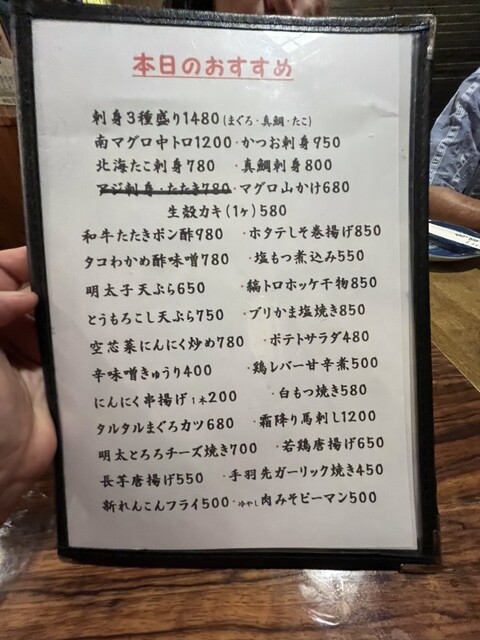 本日のおすすめ
刺身3種盛り1480(まぐろ・真鯛・たこ)
南マグロ中トロ1200・かつお刺身950
北海たこ刺身780 ・真鯛刺身800
アジ刺身・たたき780・マグロ山かけ680
生殻カキ(1ヶ)580
和牛たたきポン酢980 ・ホタテしそ巻揚げ850
タコわかめ酢味噌780 ・塩もつ煮込み550
明太子天ぷら650 ・縞トロホッケ干物850
とうもろこし天ぷら750 ・ブリかま塩焼き850
空芯菜にんにく炒め780 ・ポテトサラダ480
辛味噌きゅうり400 ・鶏レバー甘辛煮500
にんにく串揚げ1本200 ・白もつ焼き580
タルタルまぐろカツ680 ・霜降り馬刺し1200
明太とろろチーズ焼き700 ・若鶏唐揚げ650
長芋唐揚げ550 ・手羽先ガーリック焼き450
新れんこんフライ500・冷やし肉みそピーマン500